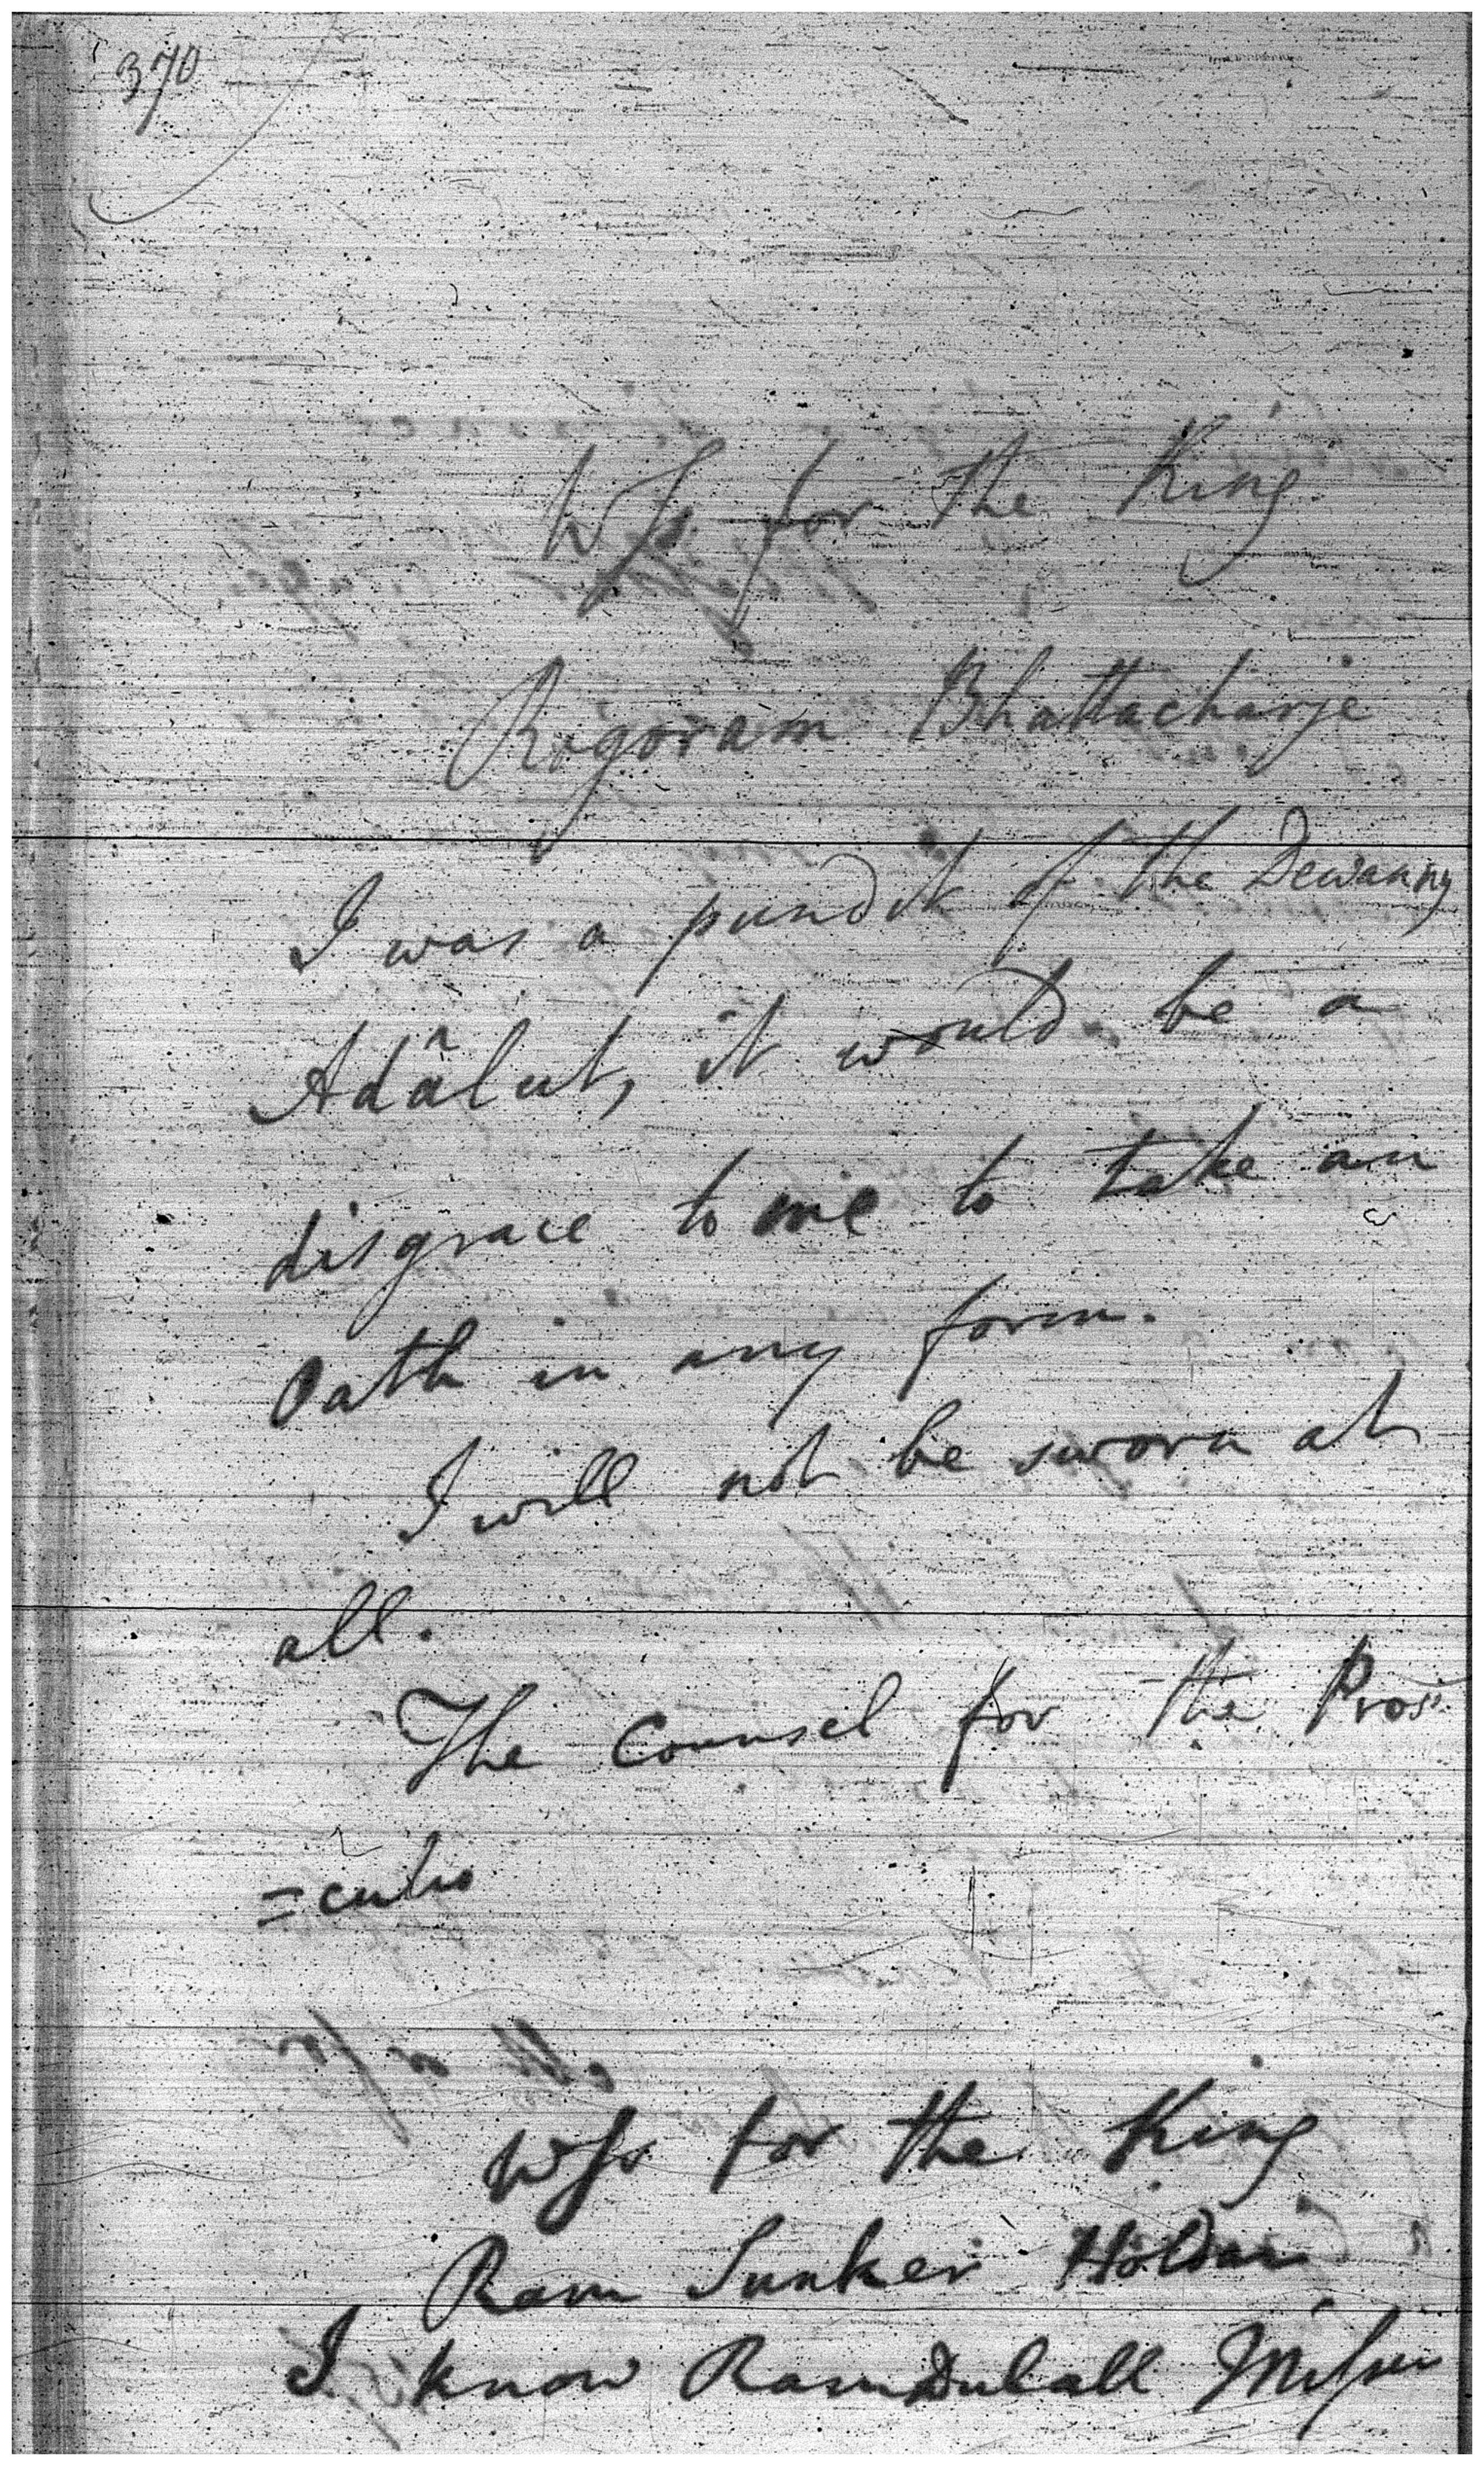 370
Wss for the King
Rogoram Bhattacharje
I was a pundit of the Dewanny
Adâlut, it would be a
disgrace to me to take an
Oath in any form.
I will not be sworn at
all.
The Counsel for the Pros
=cutio
Wss for the King
Ram Sunker Holdar
I know RamDulall Misser